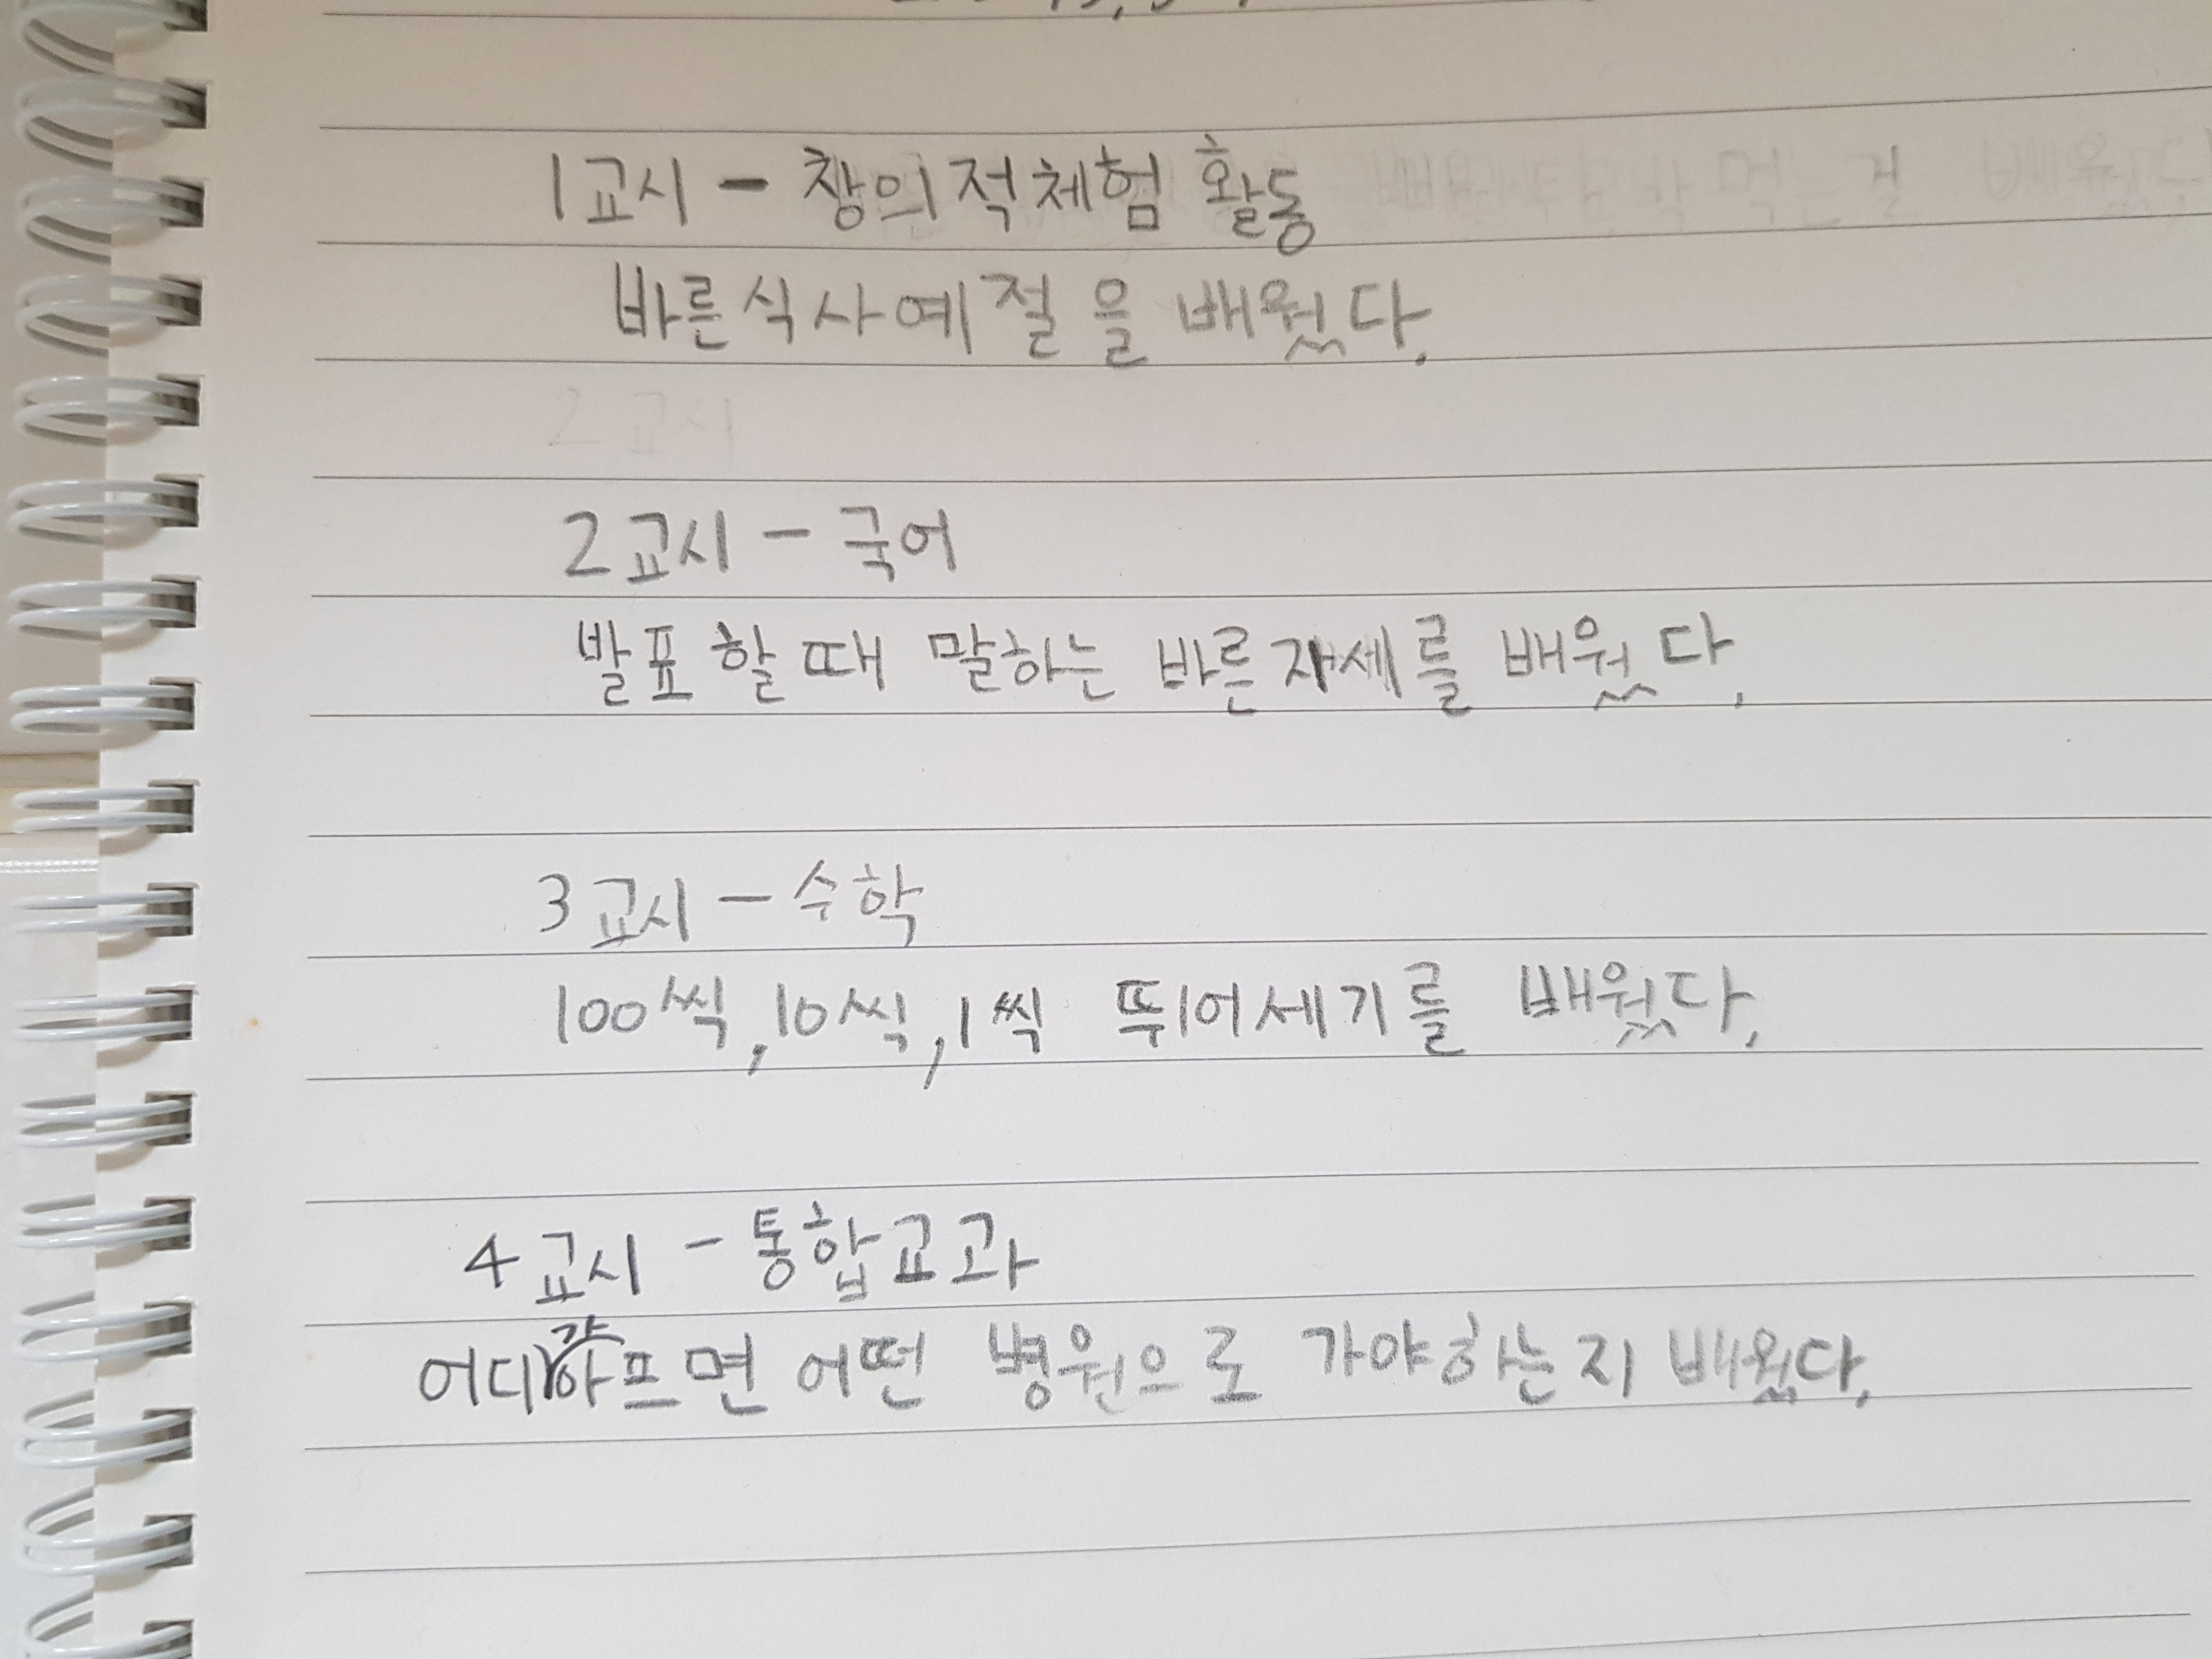 1교시 - 창의적체험 활동
바른식사예절을 배웠다.
2교시
2교시 - 국어
발표할때 말하는 바른자세를 배웠다.
3교시 - 수학
100씩, 10씩, 1씩 뛰어세기를 배웠다.
4교시 - 통합교과
어디가아프면 어떤 병원으로 가야하는지 배웠다.